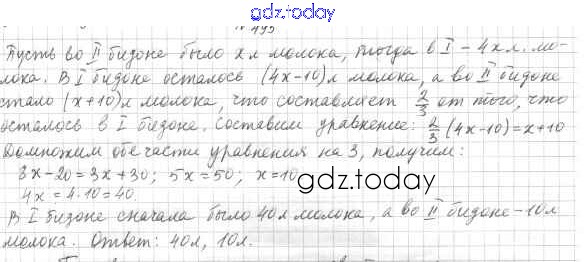 gdz.today
№ 499
Пусть во II бидоне было x л молока, тогда в I – 4x л. мо-
лока. В I бидоне осталось (4x-10) л молока, а во II бидоне
стало (x+10) л молока, что составляет 2/3 от того, что
осталось в I бидоне. Составим уравнение: 2/3 (4x-10) = x+10
Домножим обе части уравнения на 3, получим:
8x-20 = 3x+30; 5x=50; x=10
4x = 4·10 = 40.
gdz.today
В I бидоне сначала было 40 л молока, а во II бидоне - 10 л
молока. Ответ: 40 л, 10 л.